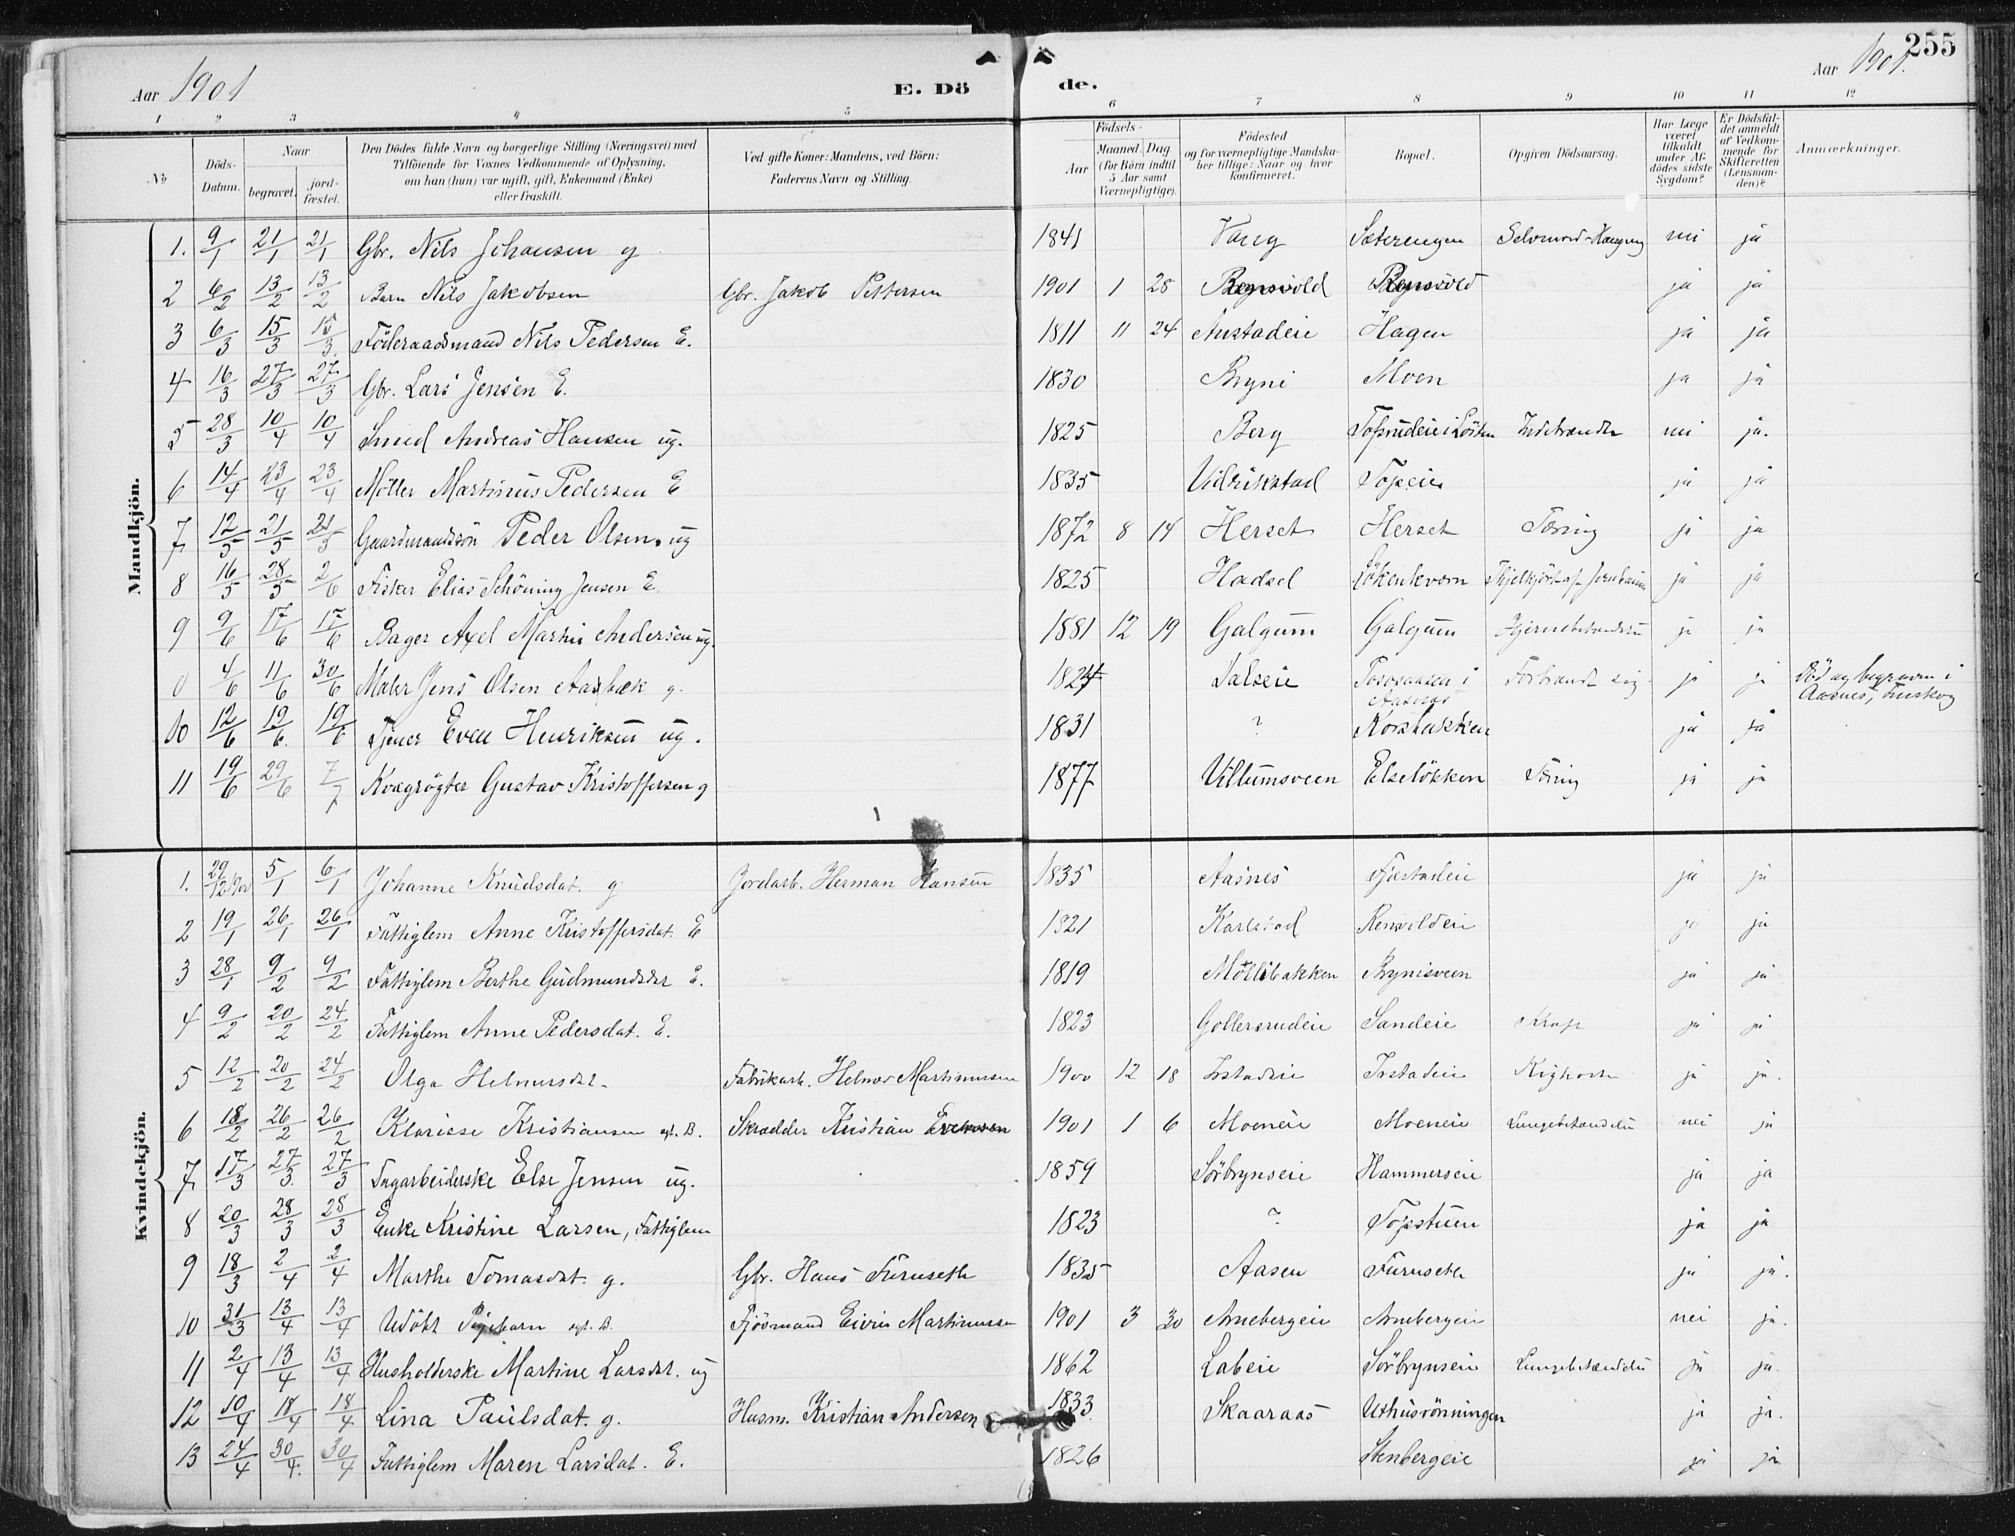 255
Aar 1901 E. Dö de. Aar 1901.
1 2 3 4 5 6 7 8 9 10 11 12
No Döds-Datum. Naar begravet. jordfæstet. Den Dödes fulde Navn og borgerlige Stilling (Næringsvei) med Tilföiende for Voxnes Vedkommende af Oplysning, om han (hun) var ugift, gift, Enkemand (Enke) eller fraskilt. Ved gifte Koner: Mandens, ved Börn: Faderens Navn og Stilling. Födsels- Aar Maaned. Dag. (for Börn indtil 5 Aar samt Værnepligtige). Födested og for værnepligtige Mandskaber tillige: Naar og hvor konfirmeret. Bopæl. Opgiven Dödsaarsag. Har Læge været tilkaldt under Afdödes sidste Sygdom? Er Dödsfaldet anmeldt af Vedkommende for Skifteretten (Lensmanden)? Anmærkninger.
Mandkjön.
1. 9/1 21/1 21/1 Gbr. Nils Johansen g 1841 Vang Sæterengen Selvmord-Hængning nei ja
2 6/2 13/2 13/2 Barn Nils Jakobsen Gbr. Jakob Pettersen 1901 1 28 Rensvold Rensvold ja ja
3 6/3 15/3 15/3 Föderaadsmand Nils Pedersen E. 1811 11 24 Anstadeie Hagen ja ja
4 16/3 27/3 27/3 Gbr. Lars Jensen E. 1830 Bryni Moen ja ja
5 28/3 10/4 10/4 Smed Andreas Hansen ug. 1825 Berg Toprudeie i Löiten nei ja.
6 14/4 23/4 23/4 Möller Martinus Pedersen E 1835 Vidrikstad Topeie ja ja
7 12/5 21/5 21/5 Gaardmandssön Peder Olsen. ug 1872 8 14 Herset Herset Tæring ja ja
8 16/5 28/5 2/6 Fisker Elias Schöning Jensen E. 1825 Hadsel Lökenkværn ja ja
9 9/6 17/6 17/6 Bager Axel Martin Andersen ug. 1881 12 19 Galgum Galgum Hjernebetændelse ja ja
0 4/6 11/6 30/6 Maler Jens Olsen Aasbæk g. 1824 Dalseie i Aasnes Forbrændt sig ja ja Död og begraven i Aasnes, Finskog
10 12/6 19/6. 19/6 Tjener Even Henriksen ug. 1831 ? Korsbakken ja ja
11 19/6 29/6 7/7 Kvægrögter Gustav Kristoffersen g 1877 Villumsveen Elselökken Tæring ja ja
Kvindekjön.
1. 29/12 1900 5/1 6/1 Johanne Knudsdat. g Jordarb. Herman Hansen 1835 Aasnes Fjæstadeie ja ja
2 19/1 26/1 26/1 Fattiglem Anne Kristoffersdat. E 1821 Karlstad Rensvoldeie ja ja
3 28/1 9/2 9/2 Fattiglem Berthe Gudmundsdat E. 1819 Möllibakken Brynisveen ja ja
4 9/2 20/2 24/2 Fattiglem Anne Pedersdat. E. 1823 Gollerrudeie Sandeie ja ja
5 12/2 20/2 24/2 Olga Helmersdat. Fabrikarb. Helmer Martinussen 1900 12 18 Irstadeie Irstadeie Kighoste ja ja.
6 18/2 26/2 26/2 Klarisse Kristiansen egt. B. Skrædder Kristian Evensen 1901 1 6 Moeneie Moeneie Lungebetændelse nei ja
7 17/3 27/3. 27/3 Fagarbeiderske Else Jensen ug. 1859 Sörbrynseie Hammerseie ja ja
8 20/3 28/3 28/3 Enke Kristine Larsen, Fattiglem 1823 ? Topstuen ja ja
9 18/3 2/4 2/4 Marthe Tomasdat. g. Gbr. Hans Furuseth 1835 Aasen Furuseth ja ja.
10 31/3 13/4 13/4 Udöbt Pigebarn egt. B. Fjösmand Eivin Martinussen 1901 3 30 Arnebergeie Arnebergeie nei ja.
11 2/4 13/4 13/4 Husholderske Martine Larsdat. ug 1862 Labeie Sörbrynseie Lungebetændelse ja ja.
12 10/4 18/4 18/4 Lina Paulsdat. g. Husm. Kristian Andersen 1833 Skaaraas Uthusrönningen ja ja.
13 24/4 30/4. 30/4 Fattiglem Maren Larsdat. E. 1826 Stenbergeie ja ja